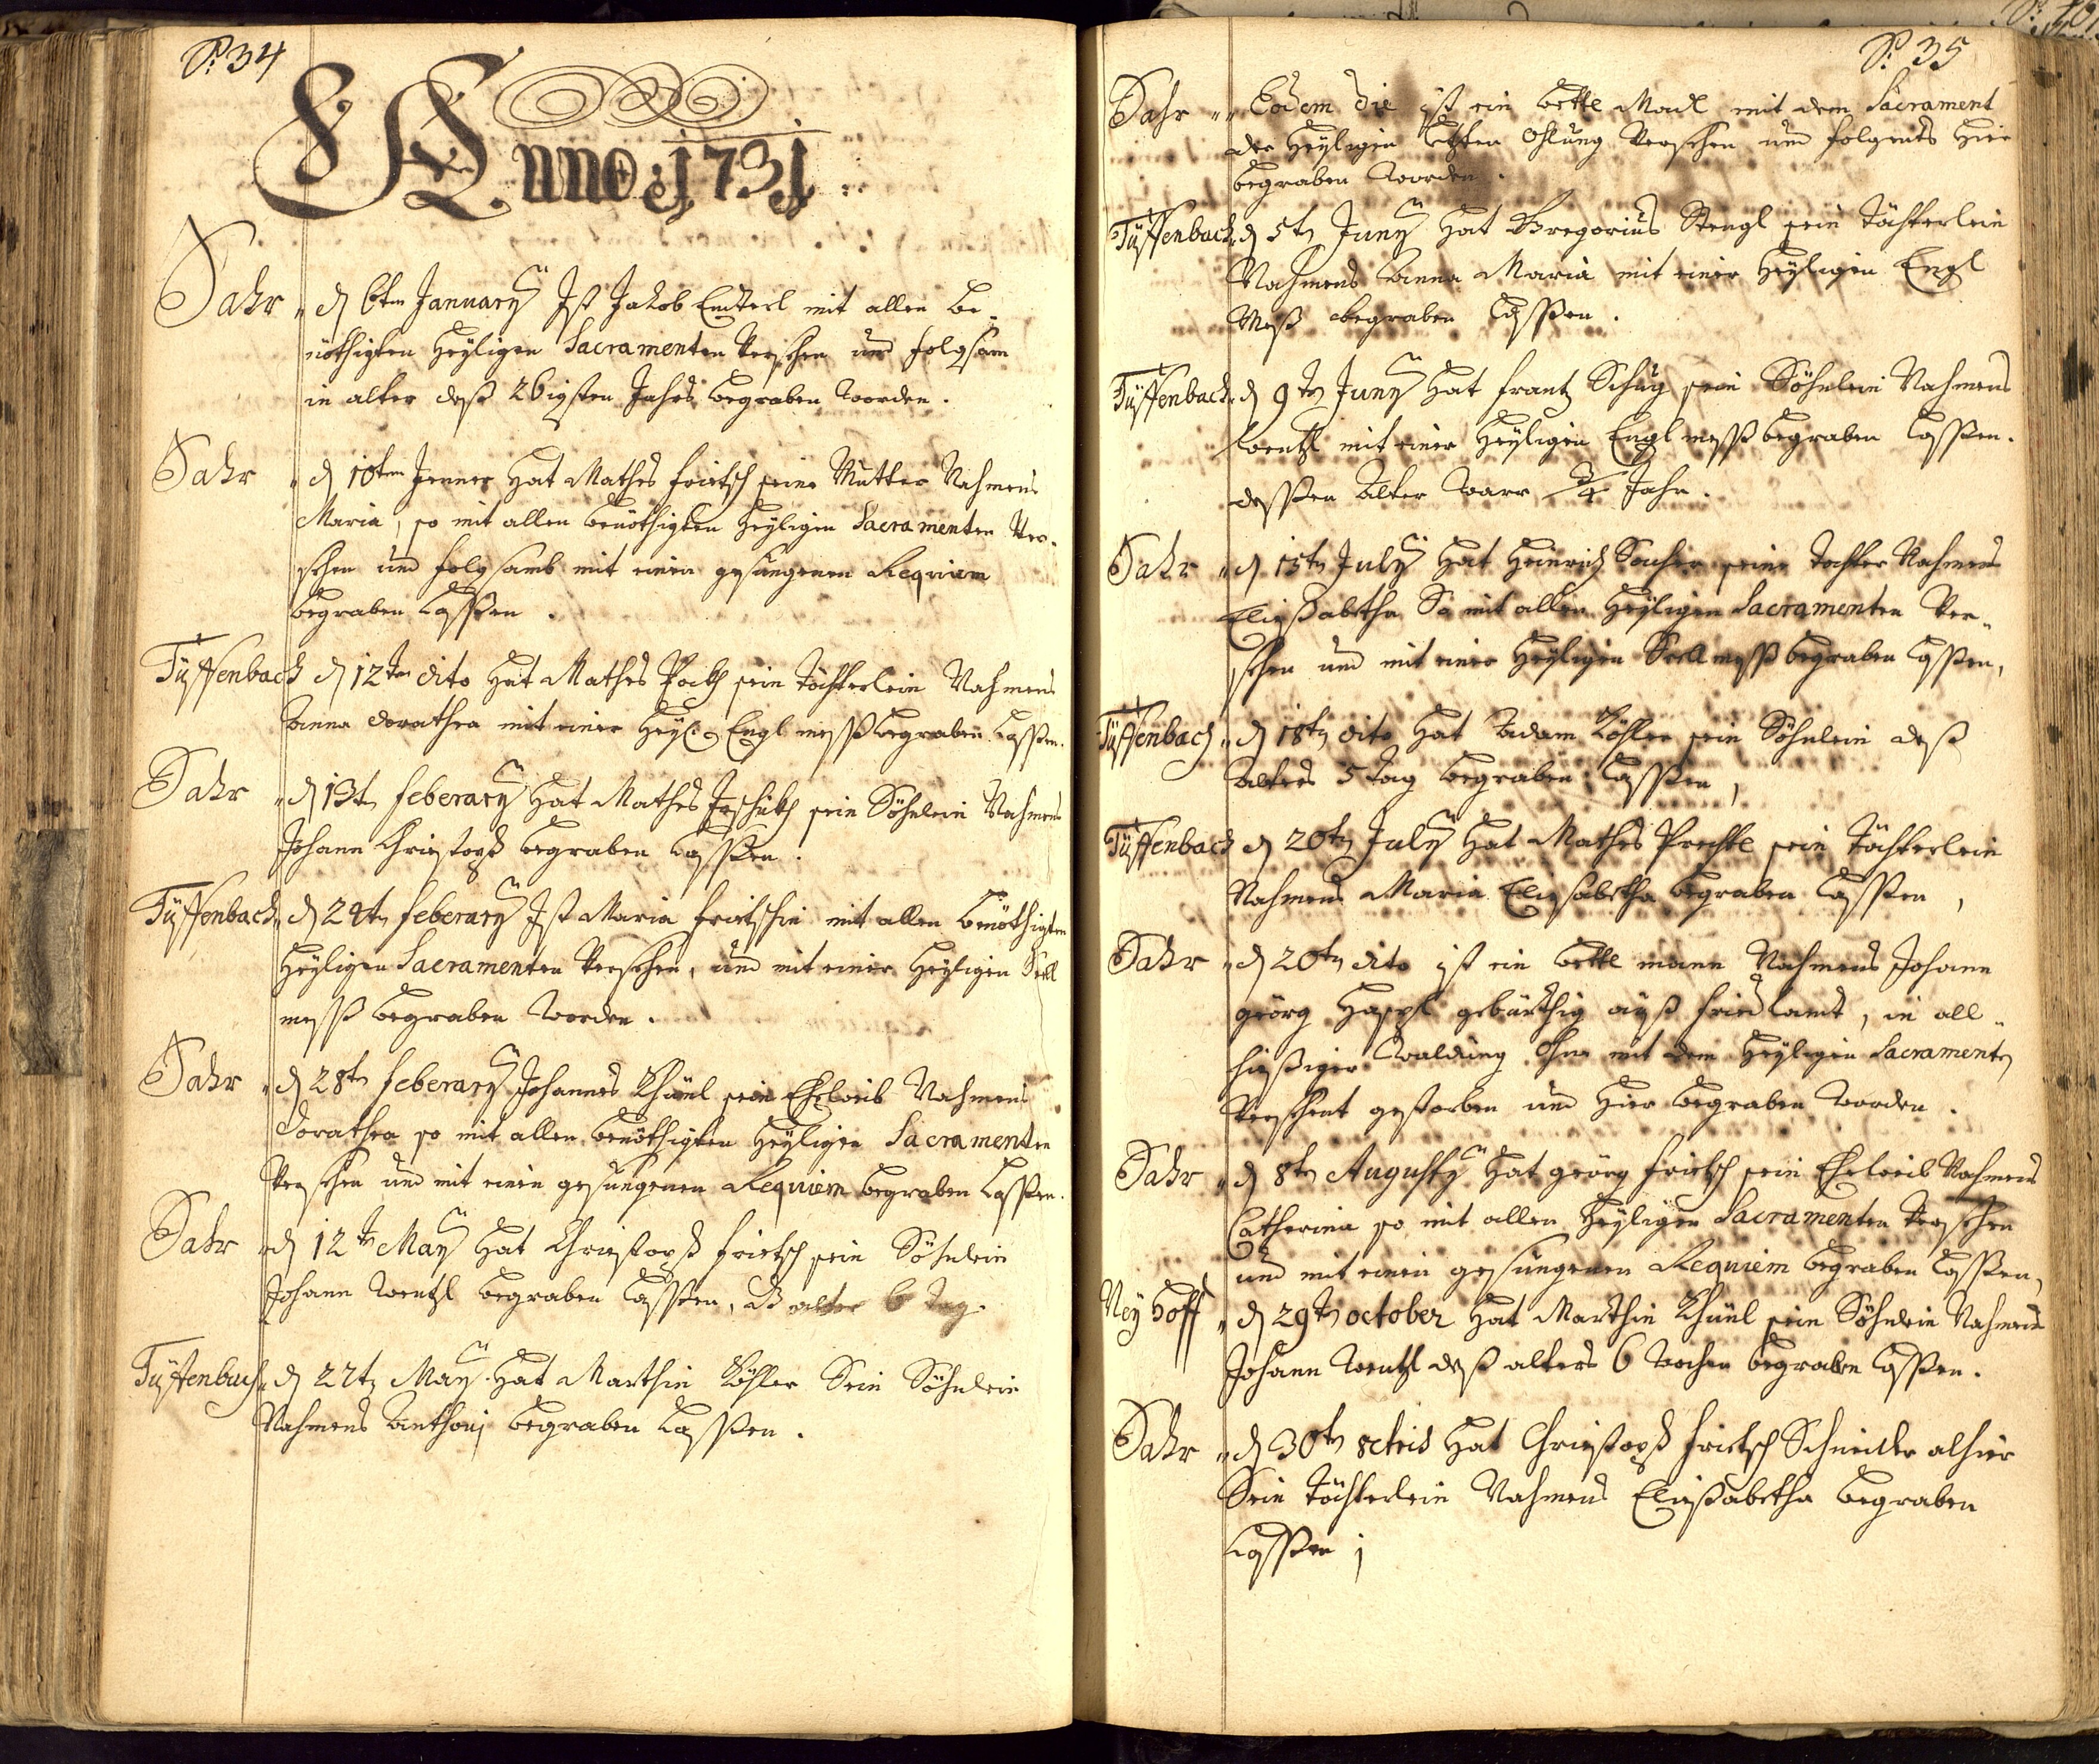 P: 34
Anno: 1731:
Sahr " d 6ten January Ist Jakob Enderl mit allen be-
nöthigten Heÿligen Sacramenten Versehen und folgsam
in alter deß 26igsten Jahrs begraben worden.
Sahr " d 10ten Jenner Hat Mathes Frietsch seine Mutter Nahmens
Maria, so mit allen benöthigten Heÿligen Sacramenten Ver-
sehen und folgsamb mit einen gesungenen Requiem
begraben Lassen.
Tüffenbach d 12ten dito Hat Mathes sein Töchterlein Nahmens
Anna Dorathea mit einer Heÿl: Engl mess begraben Lassen.
Sahr " d 13t Feberarÿ Hat Mathes sein Söhnlein Nahmens
Johann Christoph begraben Lassen.
Tüffenbach " d 24t Feberarÿ Ist Maria Frietschin mit allen benöthigten
Heÿligen Sacramenten Versehen, und mit einer Heÿligen Seel
mess begraben worden.
Sahr " d 28t Feberarÿ Johannes Khünl sein Eheweib Nahmens
Dorathea so mit allen benöthigten Heÿligen Sacramenten
Versehen und mit einen gesungenen Requiem begraben Lassen.
Sahr " d 12t Maÿ Hat Christoph Frietsch sein Söhnlein
Johann Wentzl begraben Lassen, alter 6 Tag.
Tüffenbach " d 22t Maÿ Hat Marthin Köhler Sein Söhnlein
Nahmens Anthonj begraben Lassen.
P: 35
Sahr " " Eodem Die ist ein bettl Madl mit dem Sacrament
der Heÿligen letzten Ohlung Versehen und folgents Hier
begraben worden.
Tüffenbach " d 5t Junÿ Hat Gregorius Stengl sein Töchterlein
Nahmens Anna Maria mit einer Heÿligen Engl
Mess begraben Lassen.
Tüffenbach " d 9t Junÿ Hat Frantz Schug sein Söhnlein Nahmens
Wentzl mit einer Heÿligen Engl mess begraben Lassen.
dessen Alter Warr 3/4 Jahr.
Sahr " d 15t Julÿ Hat Heinrich seine Tochter Nahmens
Elisabetha So mit allen Heÿligen Sacramenten Ver-
sehen und mit einer Heÿligen Seell mess begraben Lassen,
Tüffenbach " d 18t dito Hat Adam Köhler sein Söhnlein deß
alters 5 Tag begraben Lassen,
Tüffenbach d 20t Julÿ Hat Mathes Prechtl sein Töchterlein
Nahmens Maria Elisabetha begraben Lassen,
Sahr " d 20t dito ist ein bettl mann Nahmens Johann
geörg Happl gebürthig auß Friedlandt, in all-
hiesiger Waldung Ohne mit dem Heÿligen Sacramenten
Versehent gestorben und Hier begraben worden.
Sahr " d 8t Augustÿ Hat geörg Frietsch sein Eheweib Nahmens
Catherina so mit allen Heÿligen Sacramenten Versehen
und mit einen gesungenen Requiem begraben Lassen,
Neÿ Hoff " d 29t October Hat Marthin Khünl sein Söhnlein Nahmens
Johann Wentzl deß alters 6 Wochen begraben Lassen.
Sahr " d 30t 8cbris Hat Christoph Frietsch Schneider alhier
Sein Töchterlein Nahmens Elisabetha begraben
Lassen ;